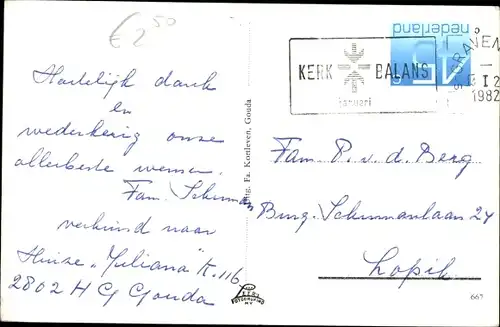 € 2,50
Hartelijk dank
en
wederkerig onze
allerbeste wensen.
Fam. Schuman
verhuisd naar
Huize "Juliana" K. 116
2802 H G Gouda
Uitg. Fa. Kortleven, Gouda
KERK BALANS
januari
'S-GRAVEN
I 2
1982
nederland
45 c
Fam. P. v. d. Berg
Burg. Schumanlaan 24
Lopik
FOTOGRAVURE
667